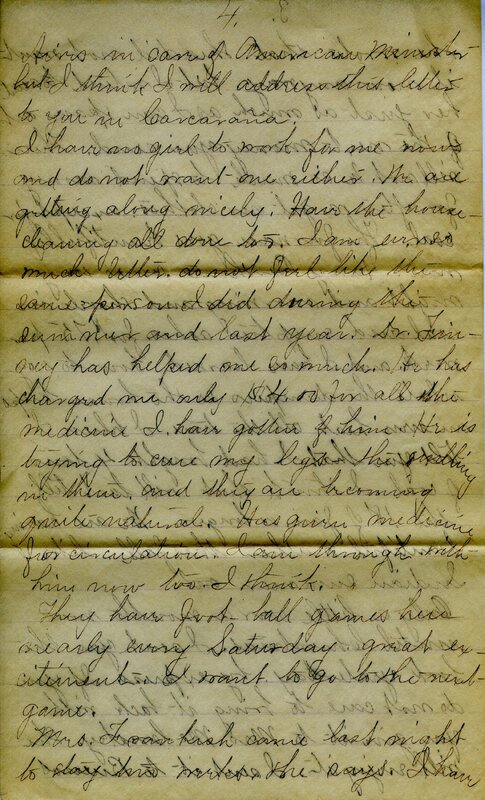 4.
Aires in care of American Minister
but I think I will address this letter
to you in Carcarana.
I have no girl to work for me now
and do not want one either. We are
getting along nicely. Have the house
cleaning all done too. I am ever so
much better. do not feel like the
same person I did during the
summer and last year. Dr. Fin-
ney has helped me so much. He has
charged me only $4.00 for all the
medicine I have gotten of him. He is
trying to cure my legs. the swelling
in them. and they are becoming
quite natural. Has given medicine
for circulation. I am through with
him now too I think.
They have foot-ball games here
nearly every Saturday great ex-
citement. I want to go to the next
game.
Mrs. came last night
to stay two weeks. she says. I have